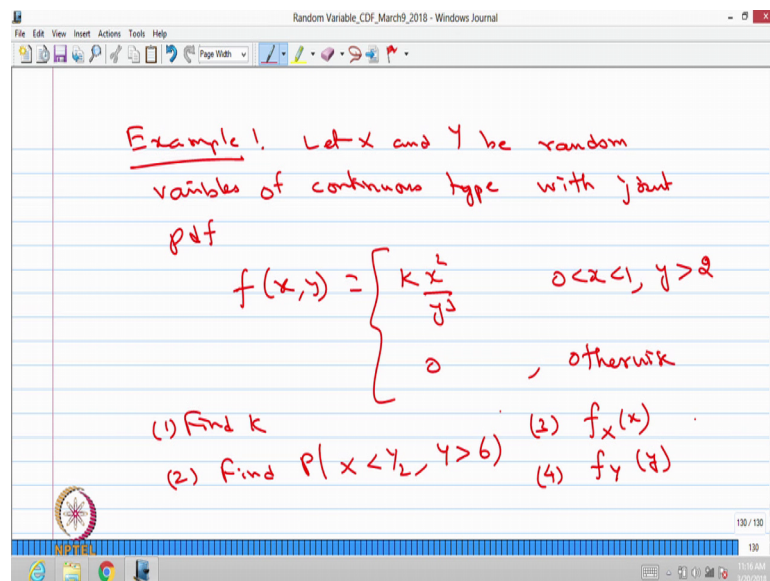 Random Variable_CDF_March9_2018 - Windows Journal
File Edit View Insert Actions Tools Help
Page Width
Example! Let X and Y be random
vaibles of continuous type with joint
pdf
f(x,y) = { k x²/y³ 0<x<1, y>2
0 , otherwise
(1) Find K (3) f_X(x)
(2) Find P( X < 1/2, Y > 6) (4) f_Y(y)
NPTEL
130 / 130
130
11:16 AM